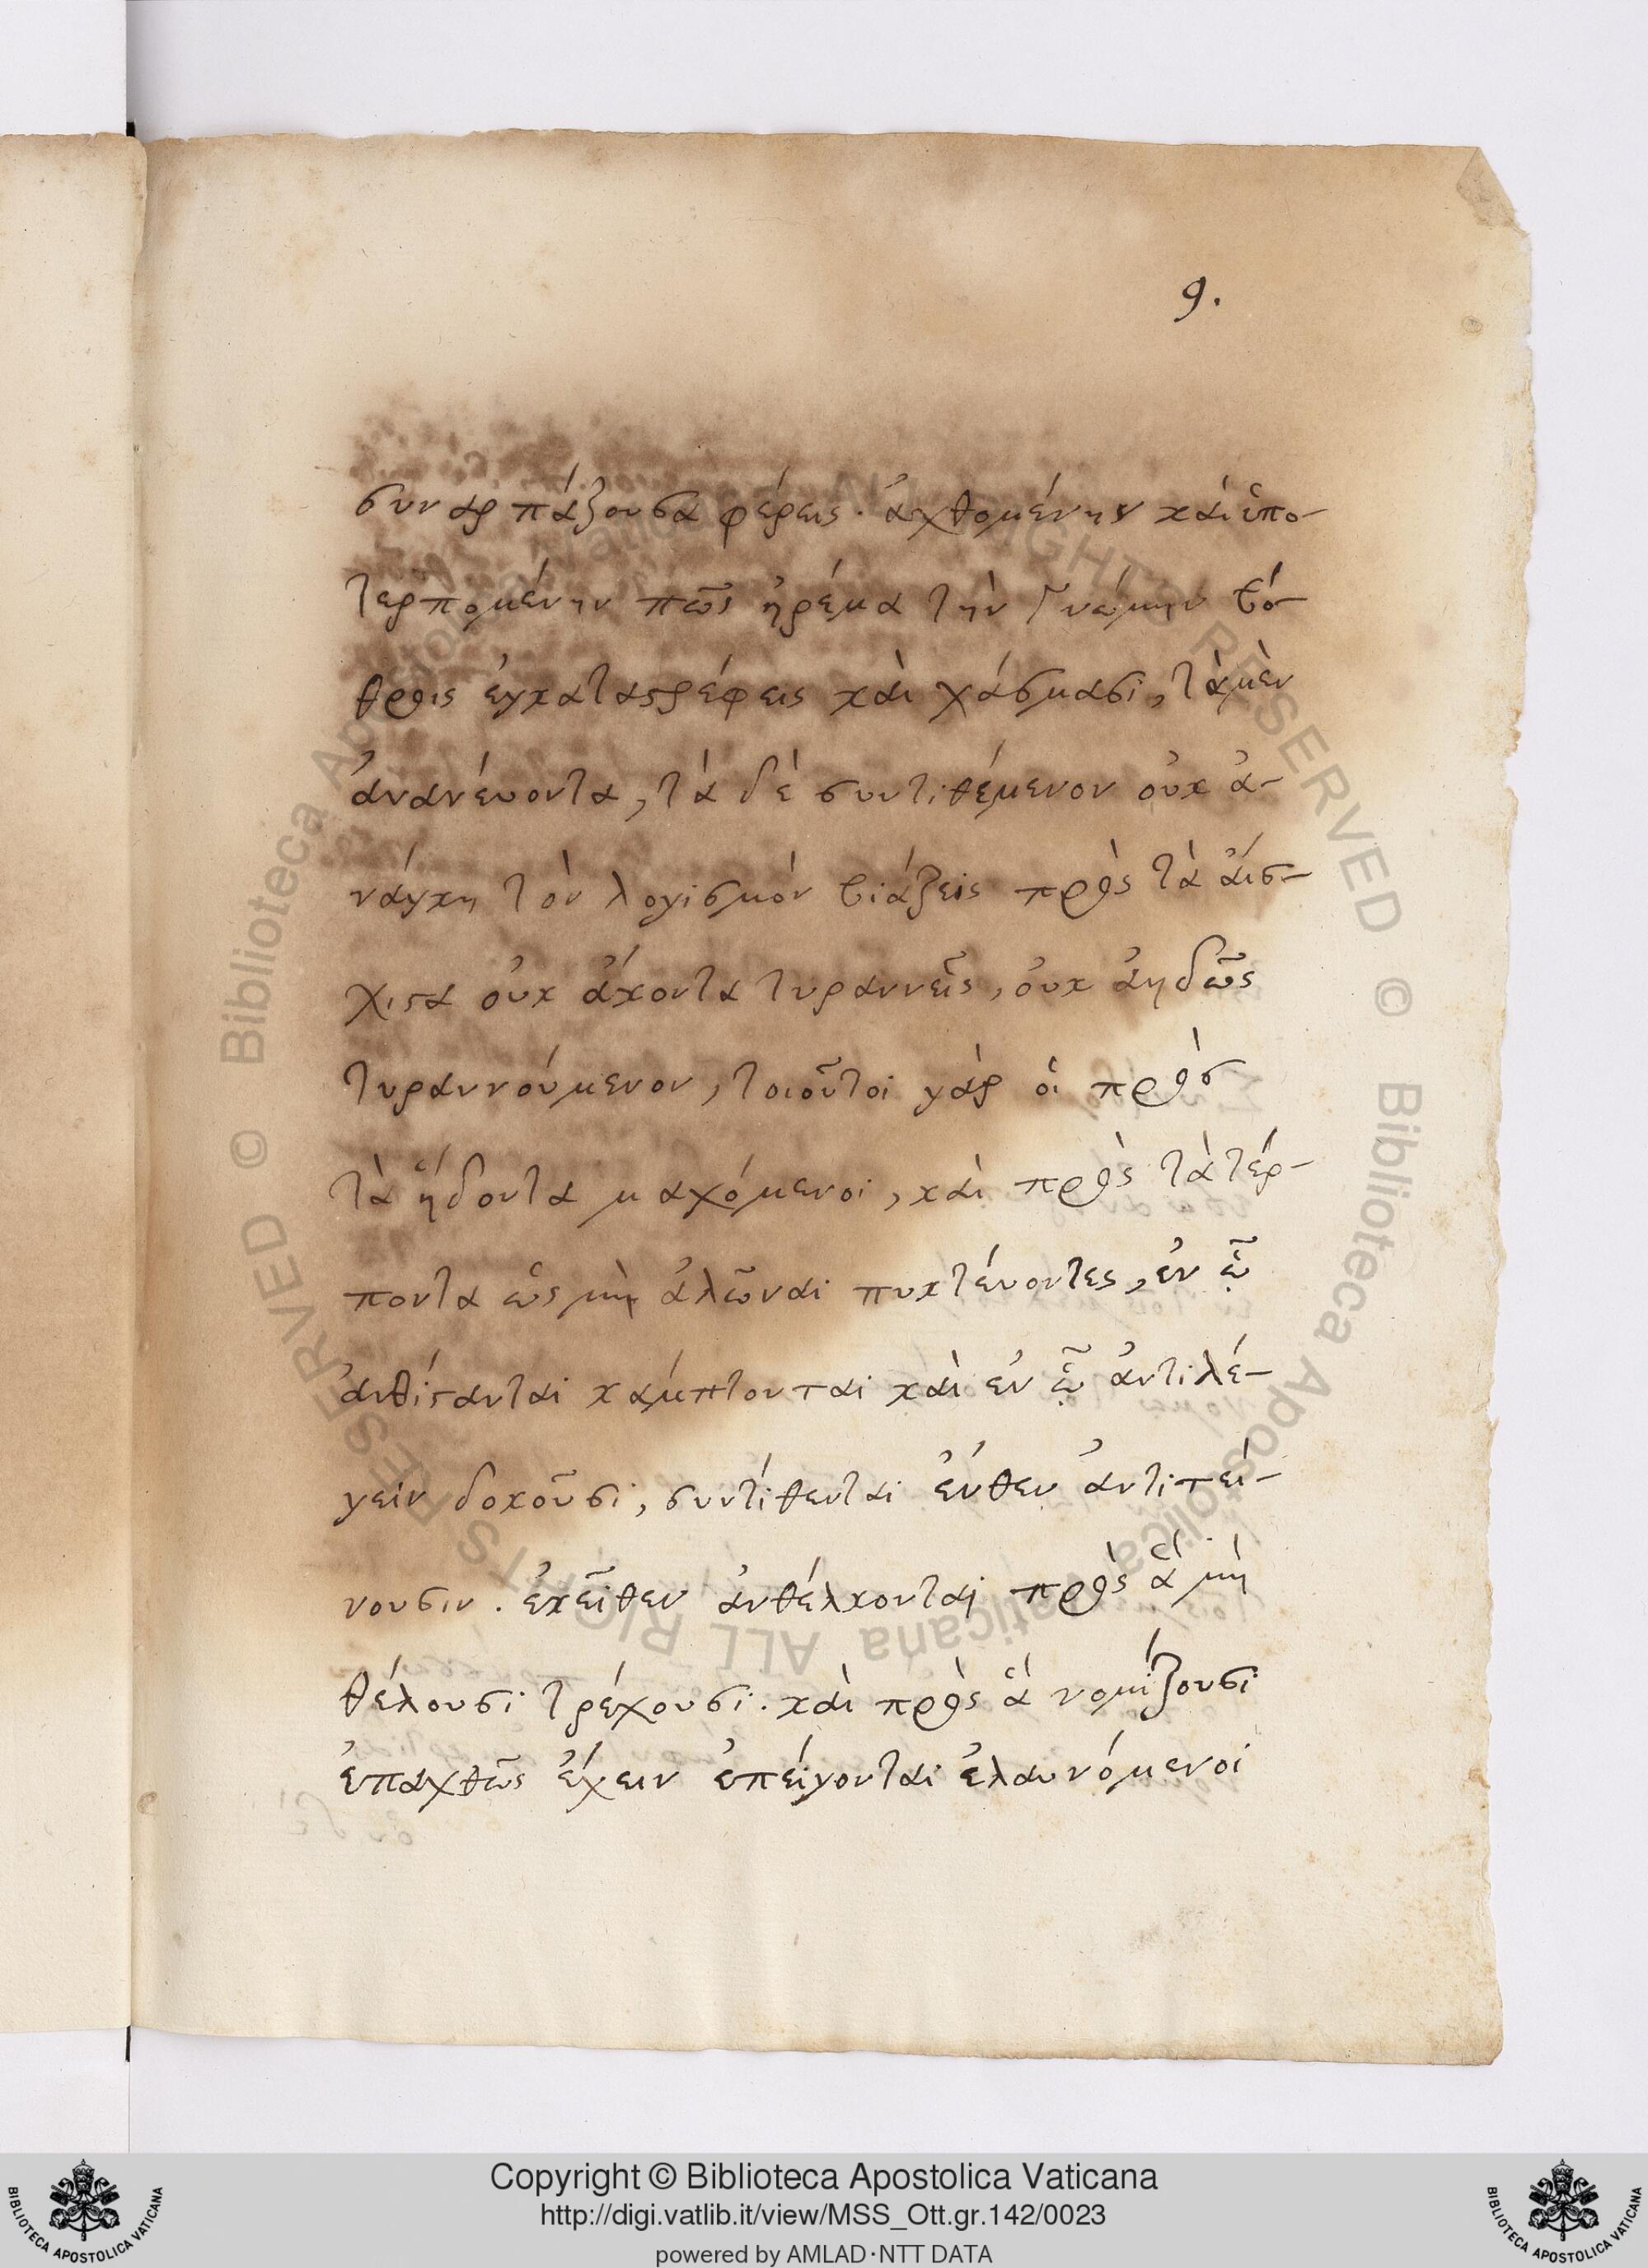 9.
συναρπάζουσα φέρεις. ἀχθομένην καὶ ὑπο-
τερπομένην πῶς ἠρέμα τὴν γνώμην βό-
θροις ἐγκαταστρέφεις καὶ χάσμασι, τὰ μὲν
ἀνανέυοντα, τὰ δὲ συντιθέμενον οὐκ ἀ-
νάγκη τὸν λογισμὸν βιάζεις πρὸς τὰ ἄισ-
χιστα οὐκ ἄκοντα τυραννεῖς, οὐκ ἀηδῶς
τυραννούμενον, τοιοῦτοι γὰρ ὁι πρὸς
τὰ ἥδοντα μαχόμενοι, καὶ πρὸς τὰ τέρ-
ποντα ὡς μὴ ἁλῶναι πυκτέυοντες, ἐν ᾧ
ἀνθίστανται κάμπτονται καὶ ἐν ᾧ ἀντιλέ-
γειν δοκοῦσι, συντίθενται ἔνθεν ἀντιτεί-
νουσιν. ἐκεῖθεν ἀνθέλκονται πρὸς ἃ μὴ
θέλουσι τρέχουσι. καὶ πρὸς ἃ νομίζουσι
ἐπαχθῶς ἔχειν ἐπείγονται ἐλαυνόμενοι
Copyright © Biblioteca Apostolica Vaticana
http://digi.vatlib.it/view/MSS_Ott.gr.142/0023
powered by AMLAD·NTT DATA
BIBLIOTECA APOSTOLICA VATICANA
BIBLIOTECA APOSTOLICA VATICANA
© Biblioteca Apostolica Vaticana ALL RIGHTS RESERVED © Biblioteca Apostolica Vaticana ALL RIGHTS RESERVED